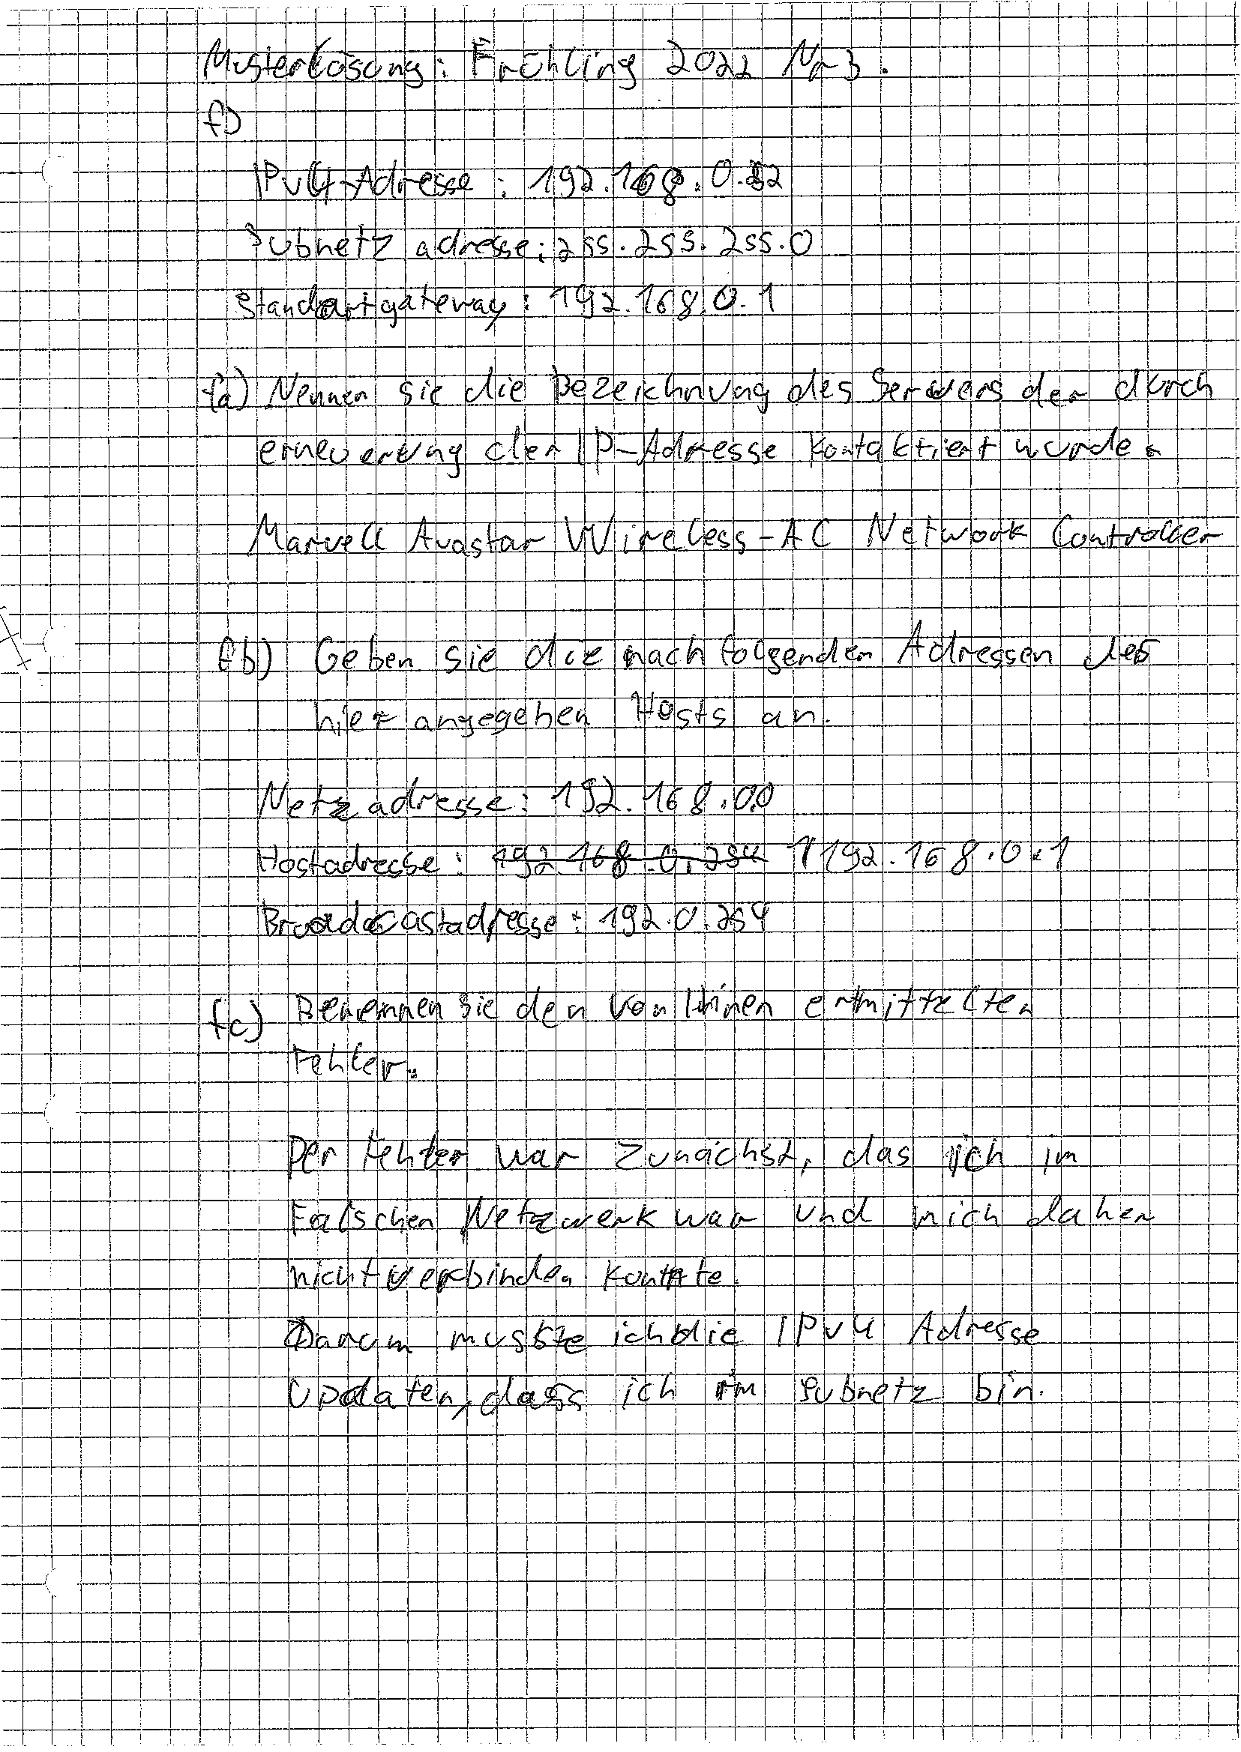 Musterlösung: Frühling 2022 Nr 3.
f)
IPv4-Adresse : 192.168.0.
Subnetz adresse: 255.255.255.0
Standartgateway: 192.168.0.1
fa) Nennen sie die Bezeichnung des Servers der durch
erneuerung der IP-Adresse Kontaktiert wurde.
Marvell Avastar Wireless-AC Network Controller
fb) Geben sie die nachfolgenden Adressen des
hier angegeben Hosts an.
Netzadresse: 192.168.0.0
Hostadresse: 192.168.0.254 192.168.0.1
Broadcastadresse: 192.0.254
fc) Benennen sie den von Ihnen ermittelten
Fehler.
Der Fehler war zunächst, das ich im
Falschen Netzwerk war und mich daher
nicht verbinden konnte.
Darum musste ich die IPv4 Adresse
Updaten, dass ich im Subnetz bin.